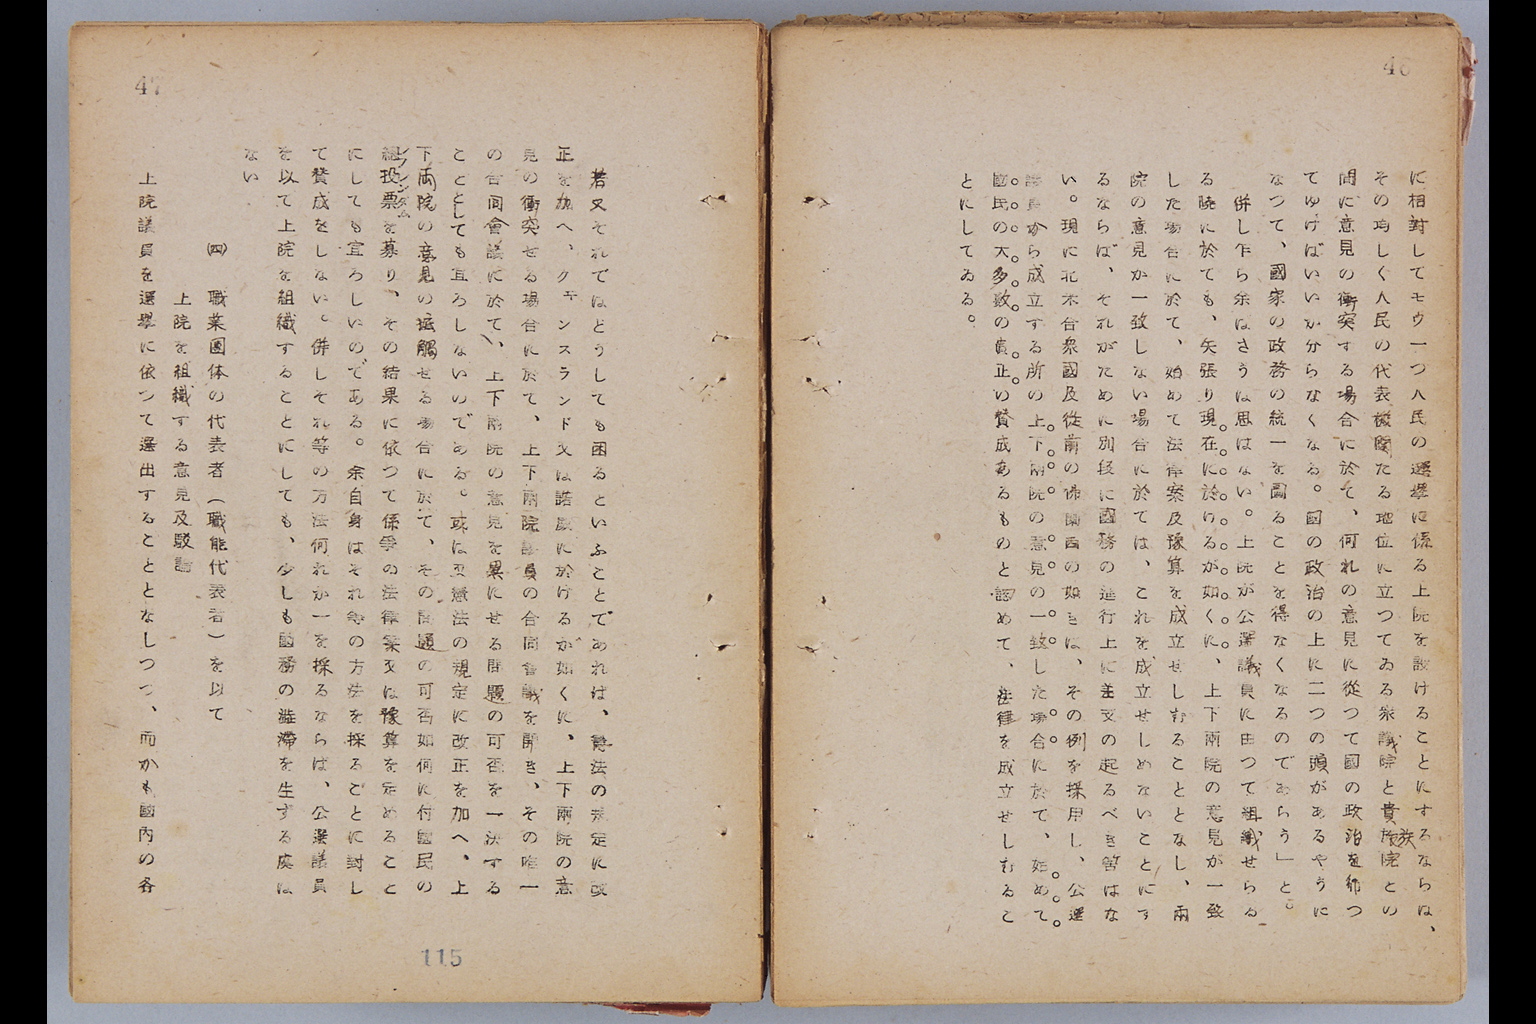 46
に相対してモウ一つ人民の選挙に係る上院を設けることにするならば、
その均しく人民の代表機関たる地位に立つてゐる衆議院と貴族院との
族
間に意見の衝突する場合に於て、何れの意見に従つて國の政治を行つ
てゆけばいいか分らなくなる。國の政治の上に二つの頭があるやうに
なつて、國家の政務の統一を圖ることを得なくなるのであらう」と。
併し乍ら余はさうは思はない。上院が公選議員に由つて組織せらる
る暁に於ても、矢張り現在に於けるが如くに、上下兩院の意見が一致
した場合に於て、始めて法律案及豫算を成立せしむることとなし、兩
院の意見が一致しない場合に於ては、これを成立せしめないことにす
るならば、それがために別段に國務の進行上に差支の起るべき筈はな
い。現に北米合衆國及従前の佛蘭西の如きは、その例を採用し、公選
議員から成立する所の上下兩院の意見の一致した場合に於て、始めて
國民の大多数の真正の賛成あるものと認めて、法律を成立せしむるこ
とにしてゐる。
47
若又それではどうしても困るといふことであれば、憲法の規定に改
正を加へ、クヰンスランド又は諾威に於けるが如くに、上下兩院の意
見の衝突せる場合に於て、上下兩院議員の合同會議を開き、その唯一
の合同會議に於て、上下兩院の意見を異にせる問題の可否を一決する
こととしても宜ろしいのである。或は又憲法の規定に改正を加へ、上
下両院の意見の抵觸せる場合に於て、その問題の可否如何に付國民の
レフレンダム
總投票を募り、その結果に依つて係爭の法律案又は豫算を定めること
にしても宜ろしいのである。余自身はそれ等の方法を採ることに対し
て賛成をしない。併しそれ等の方法何れか一を採るならば、公選議員
を以て上院を組織することにしても、少しも國務の澁滞を生ずる虞は
ない
(四)　職業團体の代表者（職能代表者）を以て
上院を組織する意見及駁論
上院議員を選挙に依つて選出することとなしつつ、而かも國内の各
115